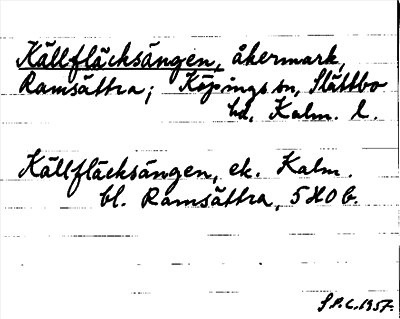 Källfläcksängen, åkermark,
Ramsättra; Köpings sn, Slättbo
hd, Kalm. l.
Källfläcksängen, ek. Kalm.
bl. Ramsättra, 5H0b.
S.P.C. 1957.